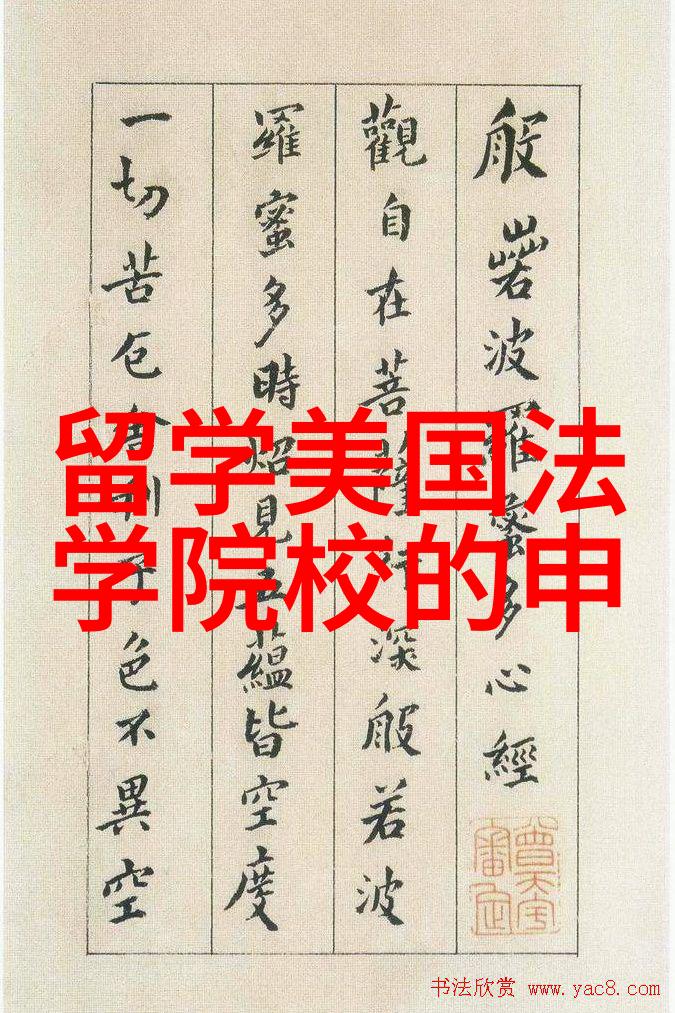 般若波羅蜜多心經
觀自在菩薩行深般若波
羅蜜多時炤見五蘊皆空度
一切苦厄舍利子色不異空
留学美国法
学院校的申
书法欣赏 www.yac8.com